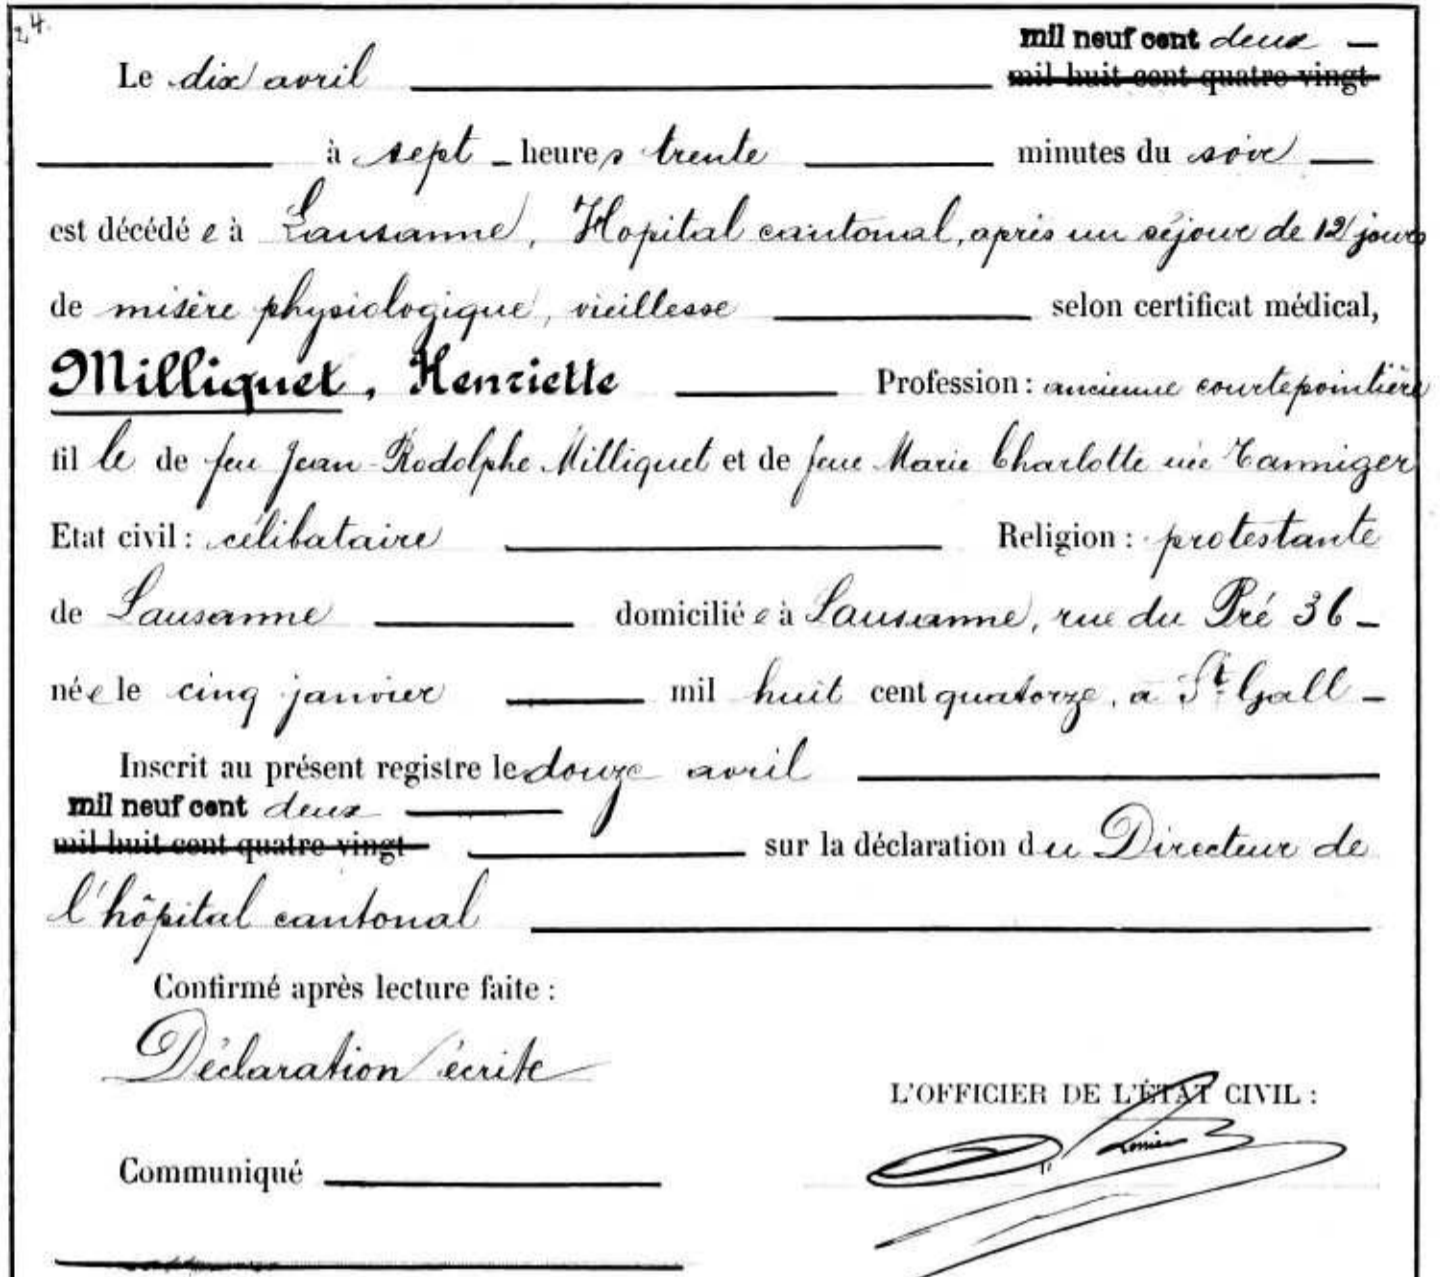 24.
mil neuf cent deux
Le dix avril mil huit cent quatre vingt
à sept heures trente minutes du soir
est décédée à Lausanne, Hopital cantonal, après un séjour de 12 jours
de misère physiologique, vieillesse selon certificat médical,
Milliquet, Henriette Profession : ancienne courtepointière
fille de feu Jean-Rodolphe Milliquet et de feue Marie Charlotte née Tanniger
Etat civil : célibataire Religion : protestante
de Lausanne domiciliée à Lausanne, rue du Pré 36
née le cinq janvier mil huit cent quatorze, à St Gall
Inscrit au présent registre le douze avril
mil neuf cent deux
mil huit cent quatre vingt sur la déclaration du Directeur de
l'hôpital cantonal
Confirmé après lecture faite :
Déclaration écrite
L'OFFICIER DE L'ÉTAT CIVIL :
Communiqué